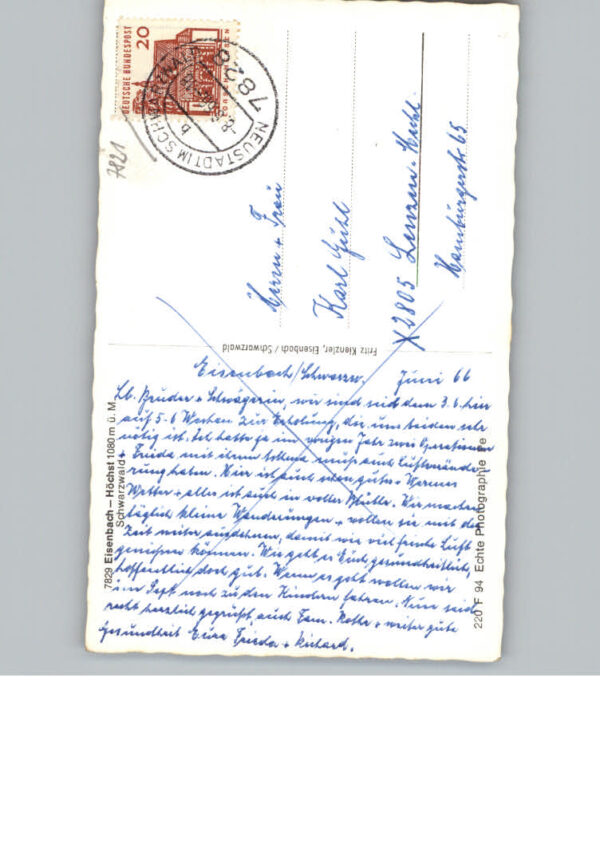 DEUTSCHE BUNDESPOST
20
782
NEUSTADT IM SCHWARZWALD
b
7821
Herrn + Frau
Karl Guhl
X2805 Lenzen-Kuhl
Hamburgerstr 65
Fritz Kienzler, Eisenbach / Schwarzwald
7829 Eisenbach – Höchst 1080 m ü. M.
Schwarzwald
220 F 94 Echte Photographie
Eisenbach/Schwarzw. Juni 66
Lb. Bruder + Schwägerin, wir sind seit dem 3.6. hier
auf 5-6 Wochen zur Erholung, die uns beiden sehr
nötig ist. Ich hatte ja im vorigen Jahr zwei Operationen
+ Frieda mit ihrem Asthma muß auch Luftverände-
rung haben. Hier ist auch schon gutes + warmes
Wetter + alles ist auch in voller Blüte. Wir machen
täglich kleine Wanderungen + wollen sie mit der
Zeit weiter ausdehnen, damit wir viel frische Luft
genießen können. Wie geht es Euch gesundheitlich,
hoffentlich doch gut. Wenn es geht wollen wir
im Sept noch zu den Kindern fahren. Nun seid
recht herzlich gegrüßt, auch Fam. + weiter gute
Gesundheit Eure Frieda + Richard.